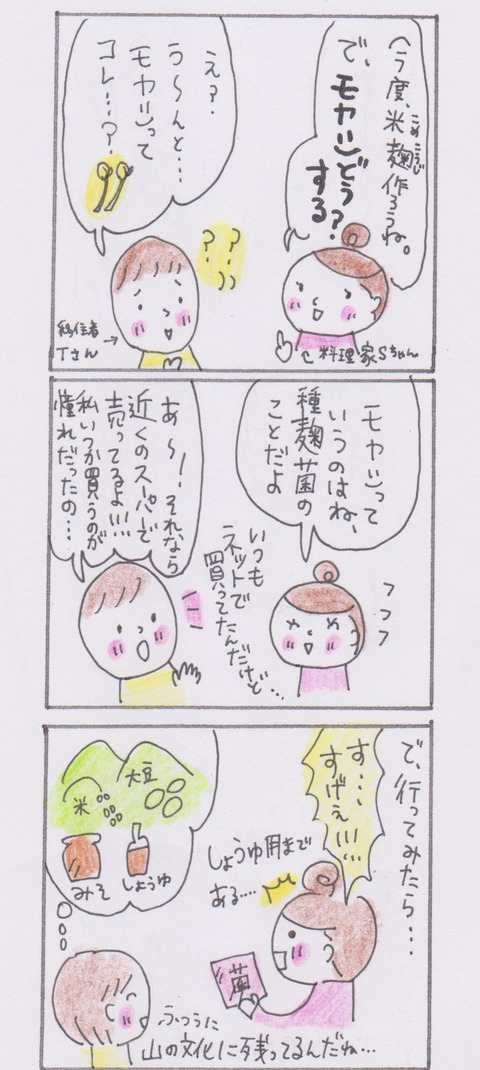 今度、米麹作ろうね。
こめこうじ
で、モヤシどう
する?
え?
う〜んと…
モヤシって
コレ…?
? ?
移住者
Tさん→
料理家Sちゃん
モヤシって
いうのはね、
種麹菌の
ことだよ
フフフ
あ〜!それなら
近くのスーパーで
売ってるよ!!!
私いつか買うのが
憧れだったの…
いつも
ネットで
買ってたんだけど…
で、行ってみたら…
す…
すげぇ!!!…
しょうゆ用まで
ある…
菌
大豆
米
みそ
しょうゆ
ふつうに
山の文化に残ってるんだね…